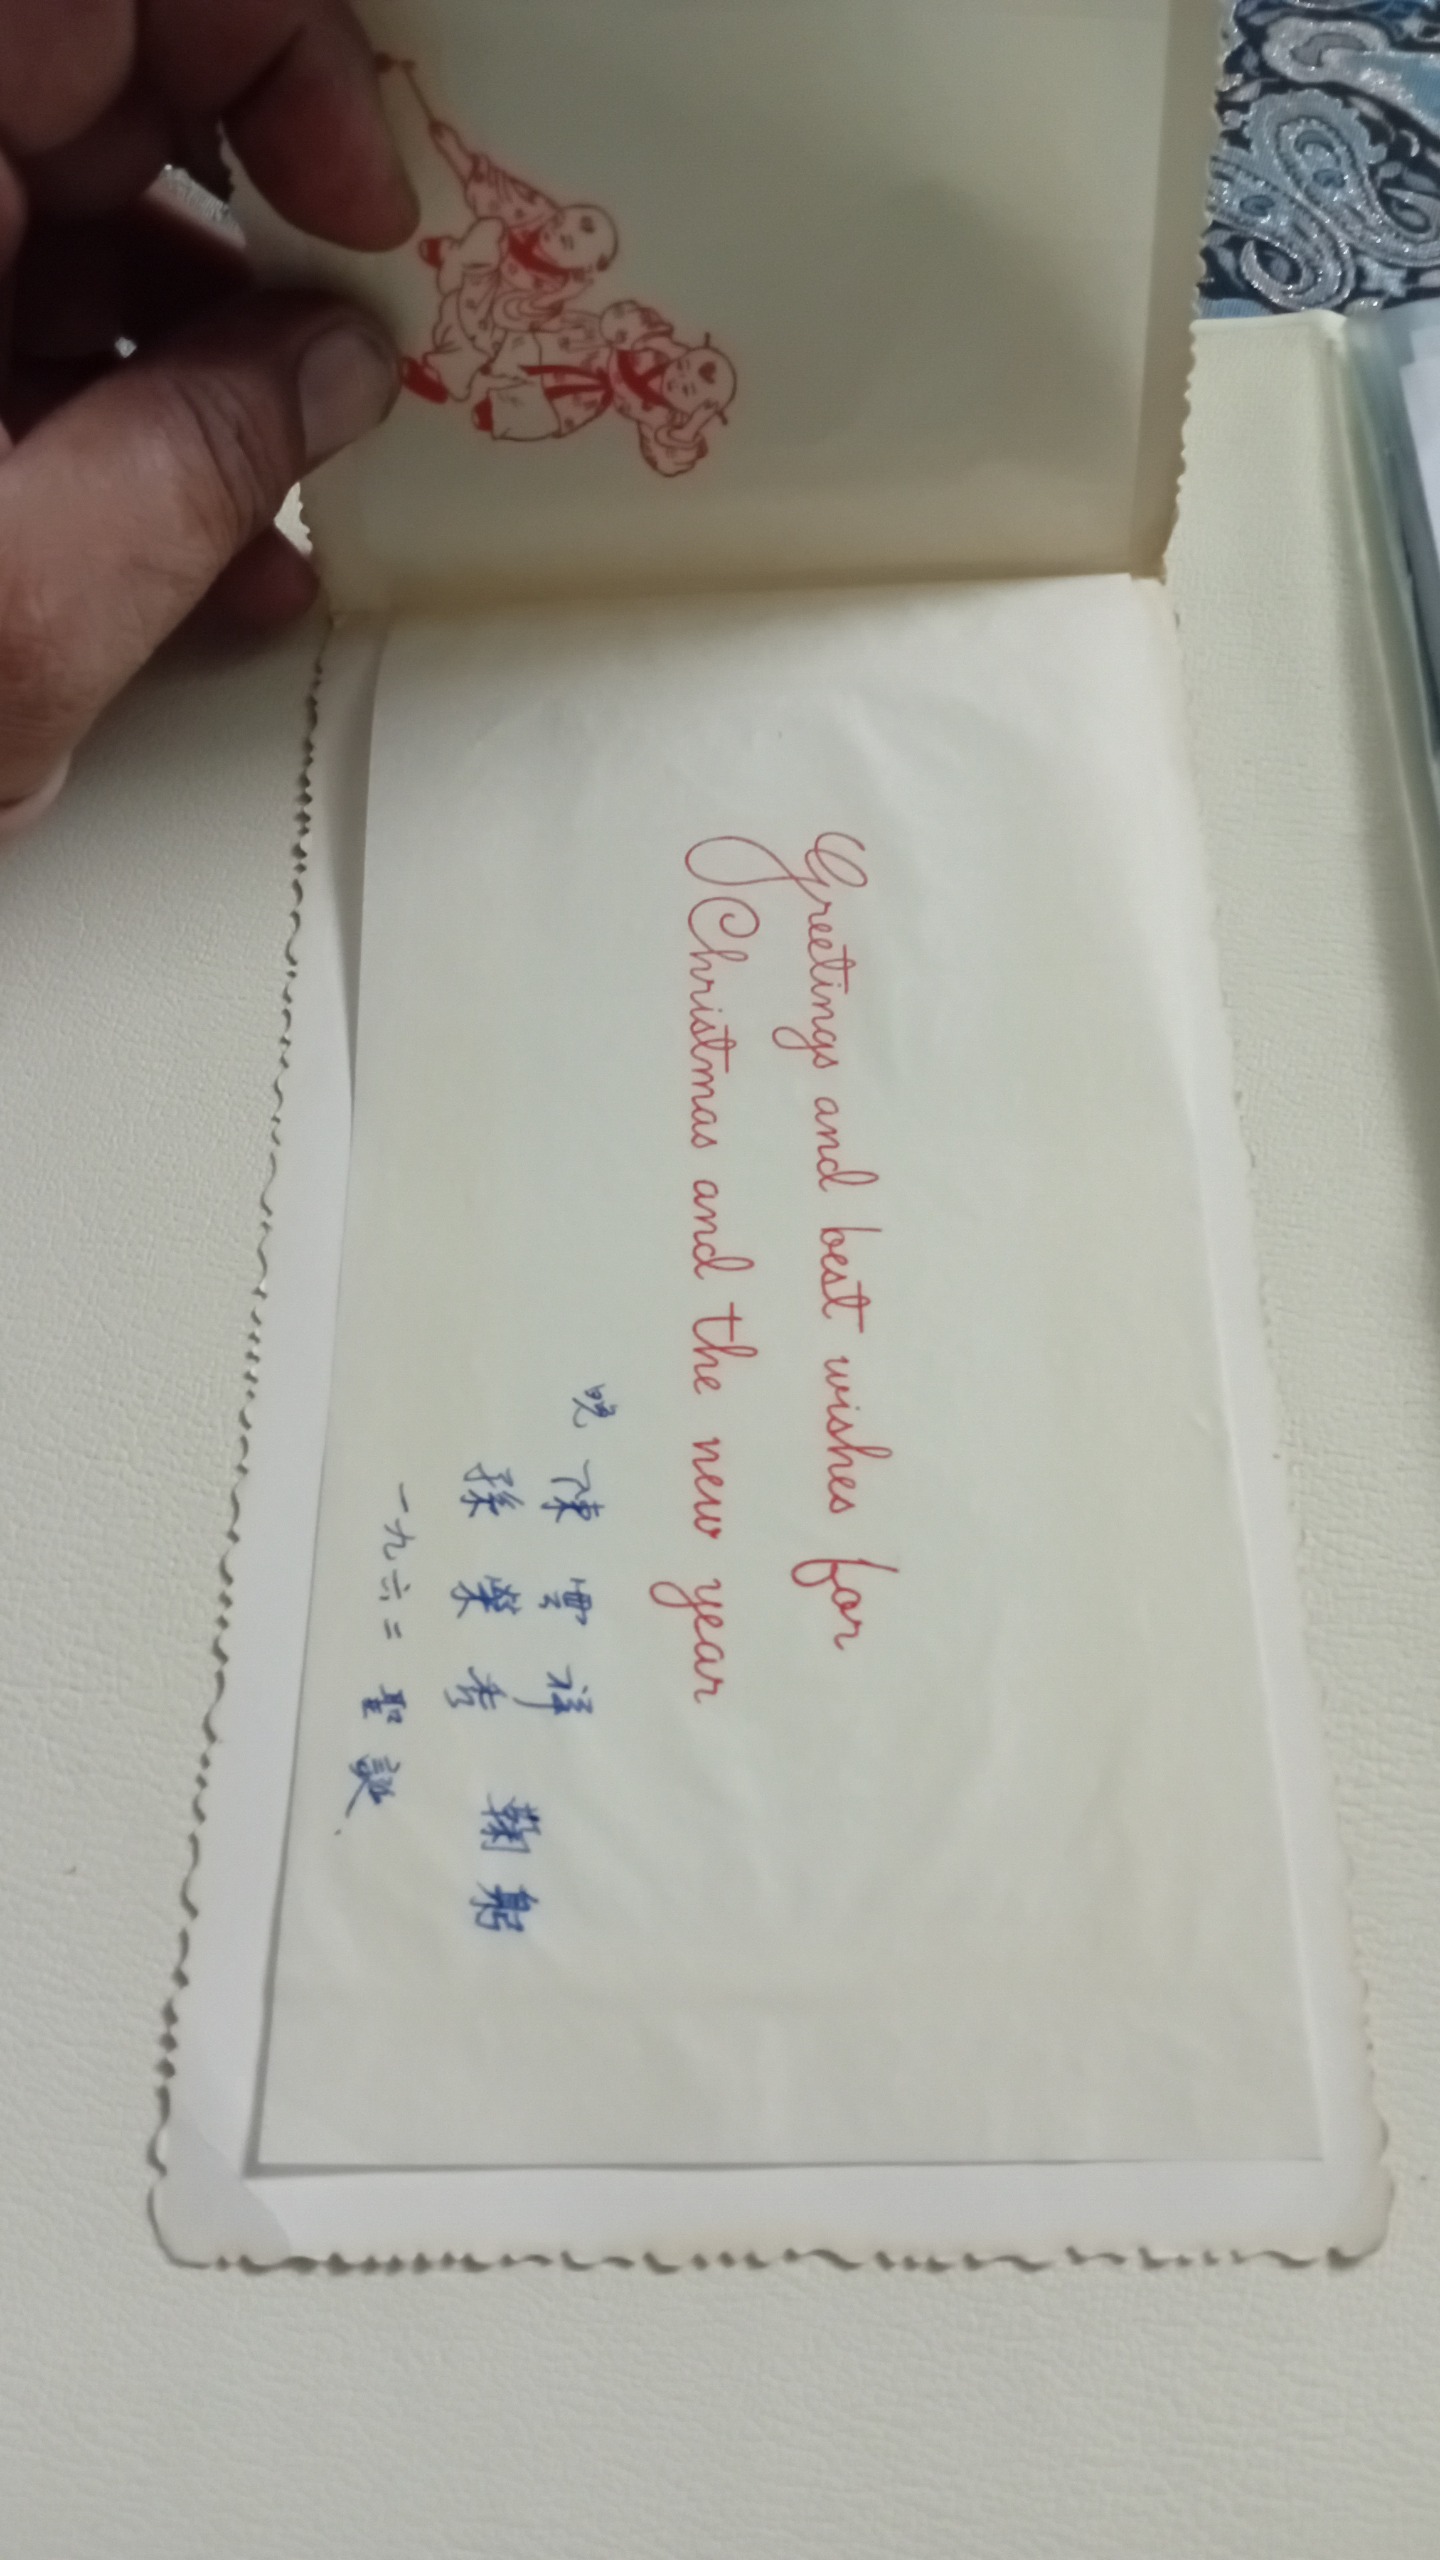 Greetings and best wishes for
Christmas and the new year
晚 陳雲祥
孫榮秀 鞠躬
一九六二 聖誕